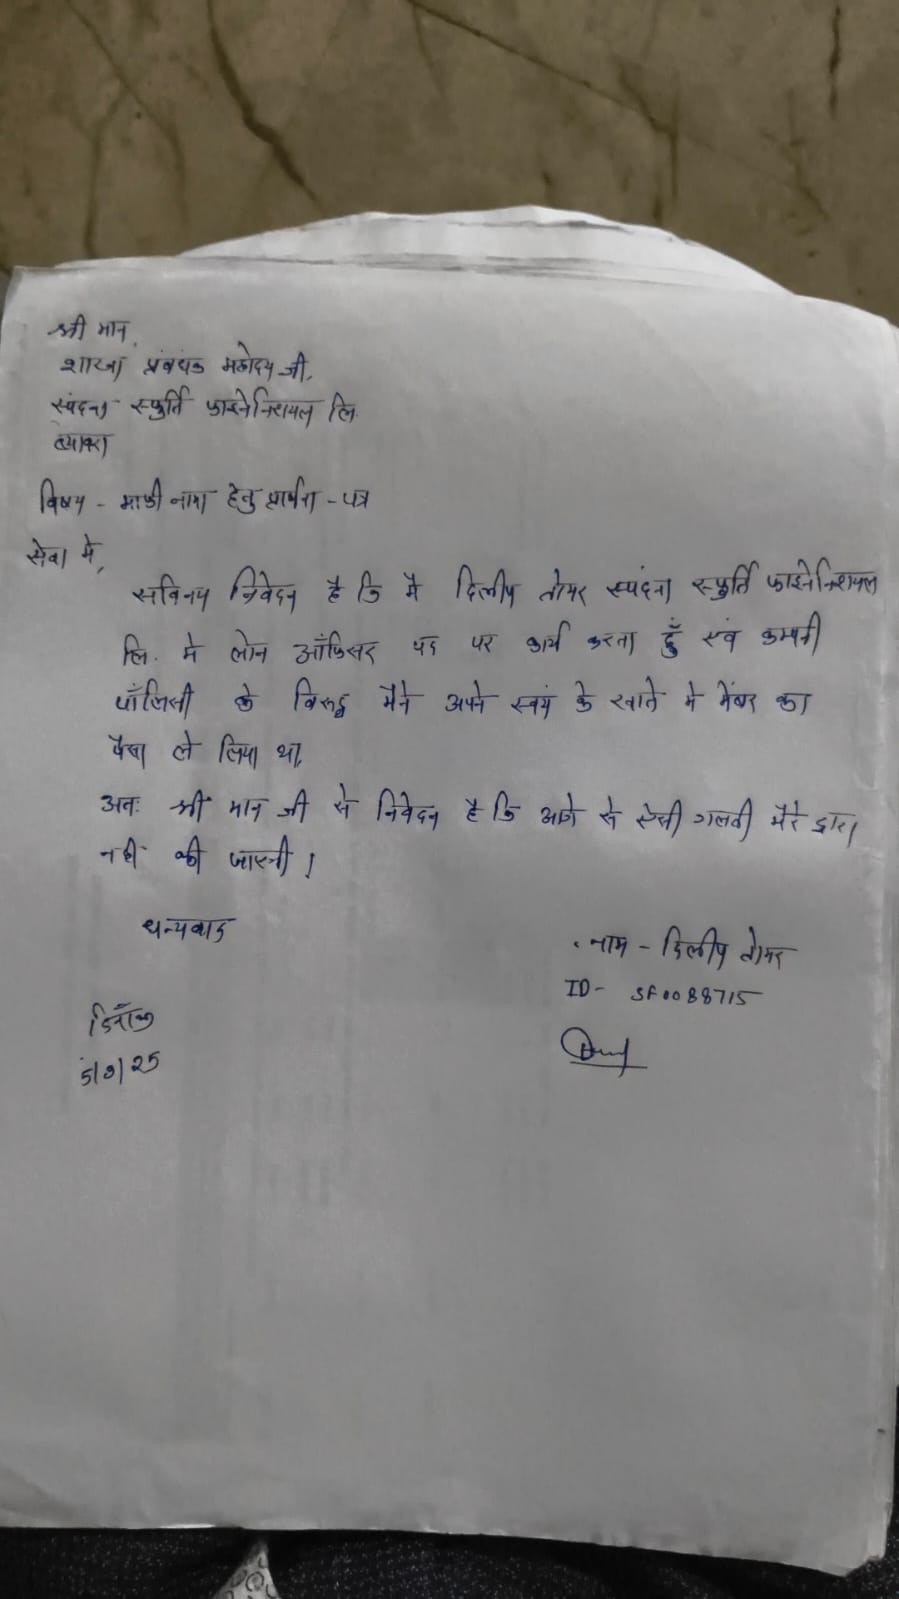 श्री मान,
शाखा प्रंबधंक महोदय जी,
स्पंदना स्फुर्ति फाइनेन्शियल लि.
विषय - माफी नामा हेतु प्रार्थना - पत्र
सेवा मे,
सविनय निवेदन है कि मै दिलीप तोमर स्पंदना स्फुर्ति फाइनेन्शियल
लि. मे लोन ऑफिसर पद पर कार्य करता हुँ एवं कम्पनी
पॉलिसी के विरुद्ध मैने अपने स्वयं के खाते मे मेंबर का
पैसा ले लिया था,
अतः श्री मान जी से निवेदन है कि आगे से ऐसी गलती मेरे द्वारा
नही की जाएगी ।
धन्यवाद
नाम - दिलीप तोमर
ID- SF0088715
दिनाँक
5/9/25